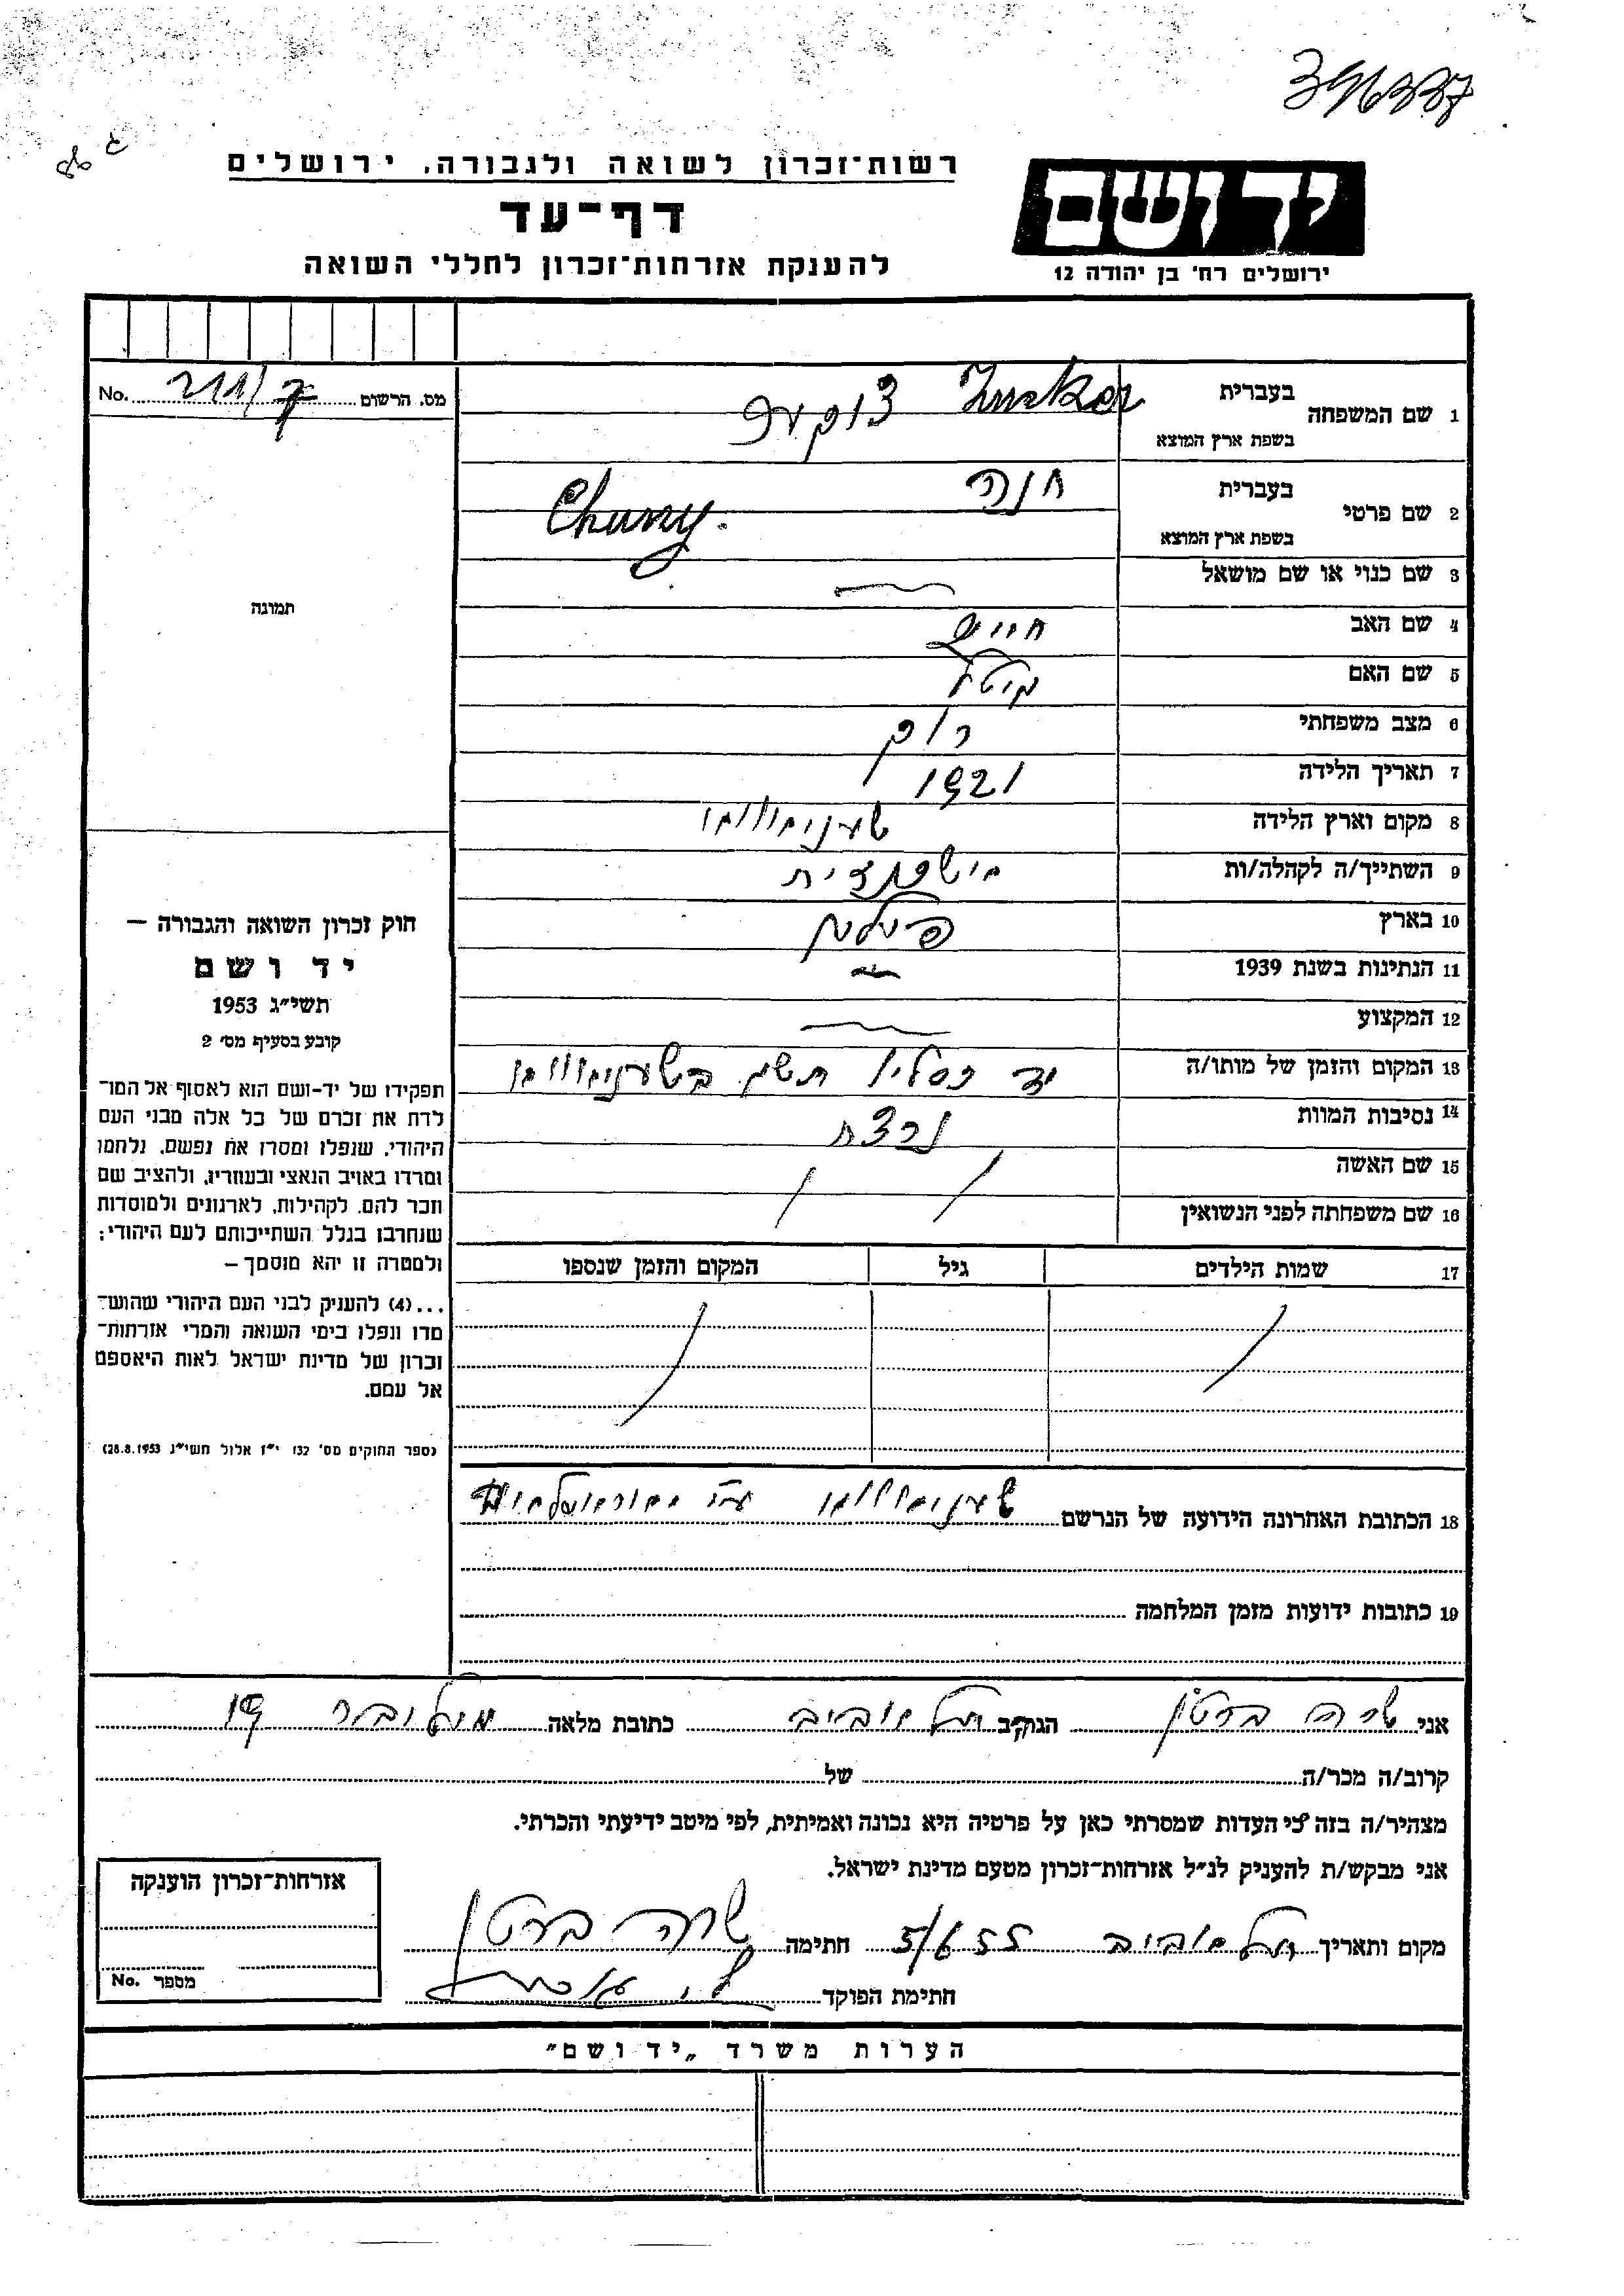 396337
רשות־זכרון לשואה ולגבורה, ירושלים
דף־עד
להענקת אזרחות־זכרון לחללי השואה
יד ושם
ירושלים רח' בן יהודה 12
מס. הרשום 211/7 No.
1 שם המשפחה בעברית Zucker צוקער
בשפת ארץ המוצא
2 שם פרטי בעברית חנה
בשפת ארץ המוצא Chany
3 שם כנוי או שם מושאל
4 שם האב חיים
5 שם האם
6 מצב משפחתי רוק
7 תאריך הלידה 1921
8 מקום וארץ הלידה
9 השתייך/ה לקהלה/ות
10 בארץ פולין
11 הנתינות בשנת 1939
12 המקצוע
13 המקום והזמן של מותו/ה יד כסליו
14 נסיבות המוות נרצח
15 שם האשה
16 שם משפחתה לפני הנשואין
17 שמות הילדים גיל המקום והזמן שנספו
18 הכתובת האחרונה הידועה של הנרשם
19 כתובות ידועות מזמן המלחמה
תמונה
חוק זכרון השואה והגבורה –
יד ושם
תשי״ג 1953
קובע בסעיף מס׳ 2
תפקידו של יד-ושם הוא לאסוף אל המו־
לדת את זכרם של כל אלה מבני העם
היהודי, שנפלו ומסרו את נפשם, נלחמו
ומרדו באויב הנאצי ובעוזריו, ולהציב שם
וזכר להם, לקהילות, לארגונים ולמוסדות
שנחרבו בגלל השתייכותם לעם היהודי;
ולמטרה זו יהא מוסמך –
...(4) להעניק לבני העם היהודי שהוש־
מדו ונפלו בימי השואה והמרי אזרחות־
זכרון של מדינת ישראל לאות היאספם
אל עמם.
(ספר החוקים מס׳ 132 י״ז אלול תשי״ג 28.8.1953)
אני שרה ברטין הגר/ב תל אביב כתובת מלאה 19
קרוב/ה מכר/ה של
מצהיר/ה בזה כי העדות שמסרתי כאן על פרטיה היא נכונה ואמיתית, לפי מיטב ידיעתי והכרתי.
אני מבקש/ת להעניק לנ״ל אזרחות־זכרון מטעם מדינת ישראל.
מקום ותאריך תל אביב 5/6 55 חתימה שרה ברטין
חתימת הפוקד
אזרחות־זכרון הוענקה
מספר No.
הערות משרד „יד ושם״